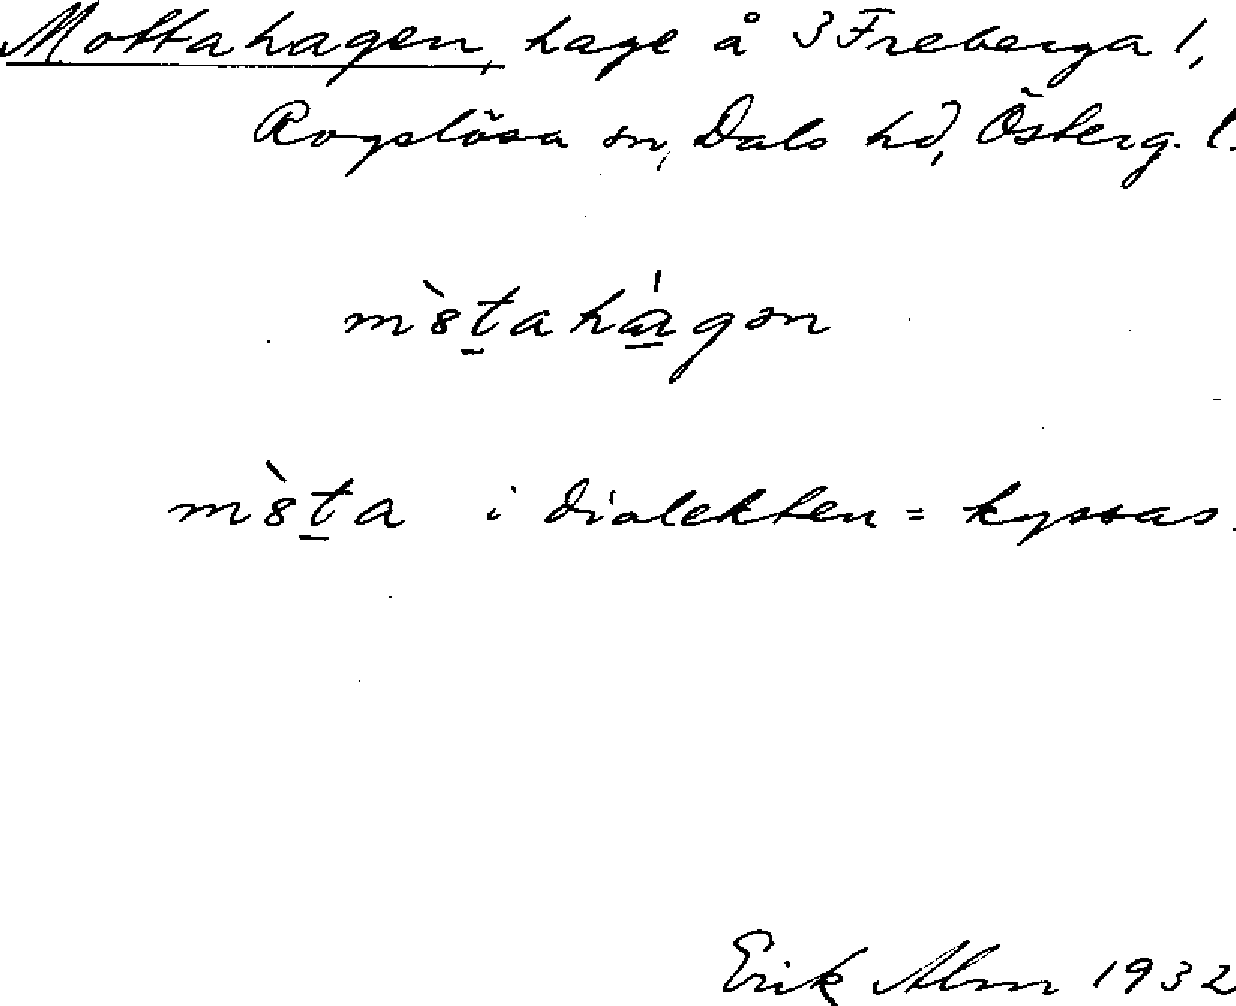 Mottahagen, hage å 3 Freberga l,
Rogslösa sn, Dals hd, Österg. l.
mò̀8ṯahá̱gən
m8̀ṯa i dialekten = kyssas.
Erik Alm 1932